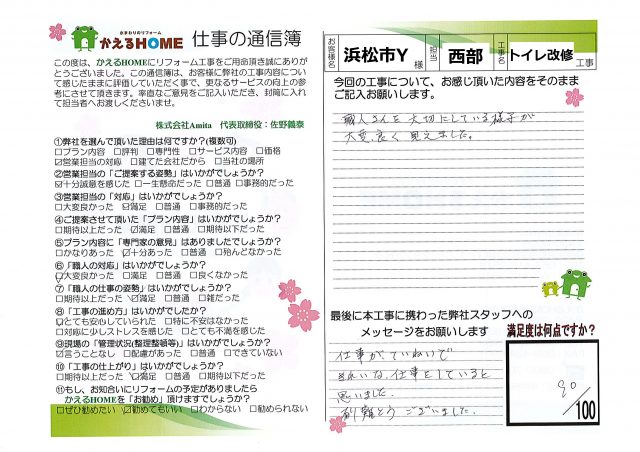 水まわりのリフォーム
かえるHOME 仕事の通信簿
この度は、かえるHOMEにリフォーム工事をご用命頂き誠にありが
とうございました。この通信簿は、お客様に弊社の工事内容につい
て感じたままに評価していただく事で、更なるサービスの向上の参
考にさせて頂きます。率直なご意見をご記入いただき、封筒に入れ
て担当者へお渡しくださいませ。
株式会社Amita 代表取締役：佐野義泰
①弊社を選んで頂いた理由は何ですか?(複数可)
□プラン内容 □評判 □専門性 □サービス内容 □価格
☑営業担当の対応 □建てた会社だから □当社の場所
②営業担当の「ご提案する姿勢」はいかがでしょうか?
☑十分誠意を感じた □一生懸命だった □普通 □事務的だった
③営業担当の「対応」はいかがでしょうか?
□大変良かった ☑満足 □普通 □事務的だった
④ご提案させて頂いた「プラン内容」はいかがでしょうか?
□期待以上だった ☑満足 □普通 □期待以下だった
⑤プラン内容に「専門家の意見」はありましたでしょうか?
□かなりあった ☑十分あった □普通 □殆んどなかった
⑥「職人の対応」はいかがでしょうか?
☑大変良かった □満足 □普通 □良くなかった
⑦「職人の仕事の姿勢」はいかがでしょうか?
□期待以上だった ☑満足 □普通 □雑だった
⑧「工事の進め方」はいかがでしたか?
☑とても安心していられた □特に不安はなかった
□対応に少しストレスを感じた □とても不満を感じた
⑨現場の「管理状況(整理整頓等)」はいかがでしょうか?
☑言うことなし □配慮があった □普通 □できていない
⑩「工事の仕上がり」はいかがでしょうか?
□期待以上だった ☑満足 □普通 □期待以下だった
⑪もし、お知合いにリフォームの予定がありましたら
かえるHOMEを「お勧め」頂けますでしょうか?
□ぜひ勧めたい ☑勧めてもいい □わからない □勧められない
お客様名 浜松市Y 様 担当 西部 工事名 トイレ改修 工事
今回の工事について、お感じ頂いた内容をそのまま
ご記入お願いします。
職人さんを大切にしている様子が
大変良く見えました。
最後に本工事に携わった弊社スタッフへの
メッセージをお願いします
満足度は何点ですか?
仕事がていねいで
きれいな仕事をしていると
思いました。
有難とうございました。
90/100